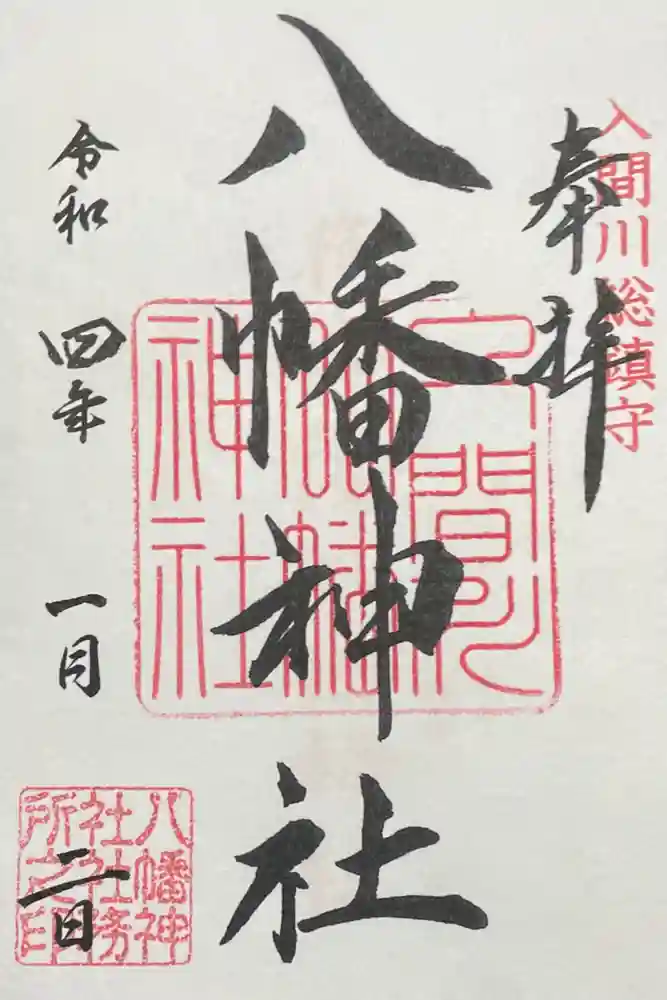 入間川総鎮守
奉拝
八幡神社
令和四年一月二日
八幡神
社社務
所之印